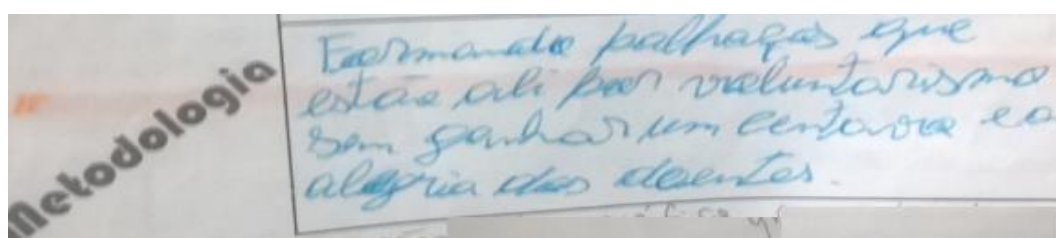 Metodologia
Formando palhaços que
estão ali por voluntarismo
sem ganhar um centavo e a
alegria dos doentes.